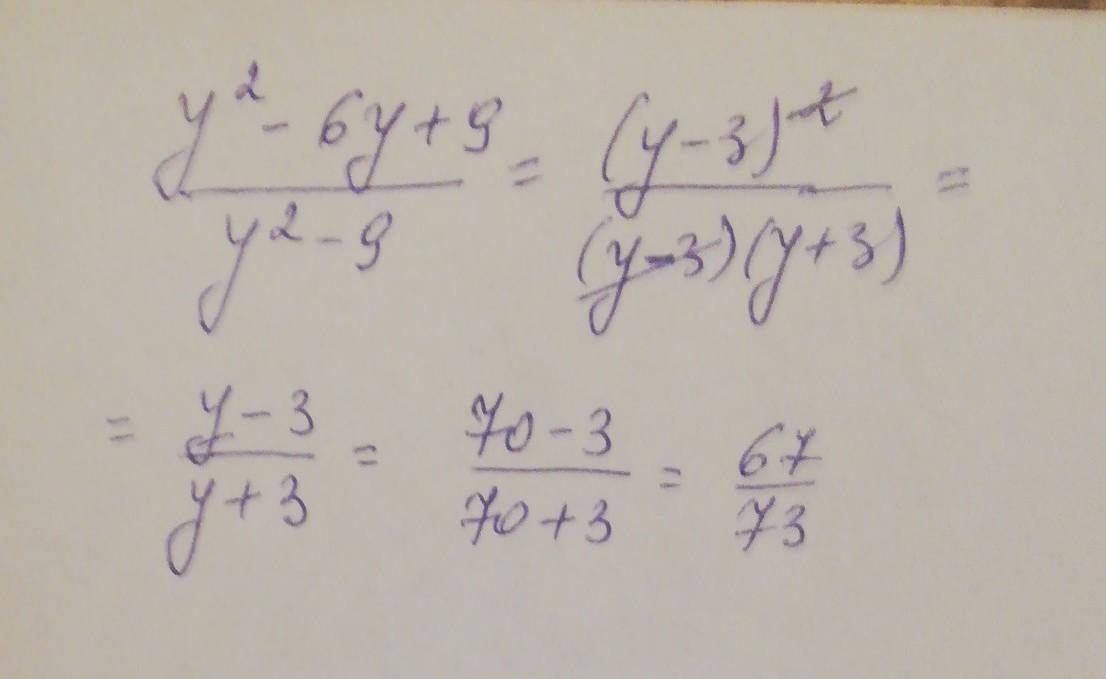 y² - 6y + 9 / y² - 9 = (y - 3)² / (y - 3)(y + 3) =
= y - 3 / y + 3 = 70 - 3 / 70 + 3 = 67 / 73